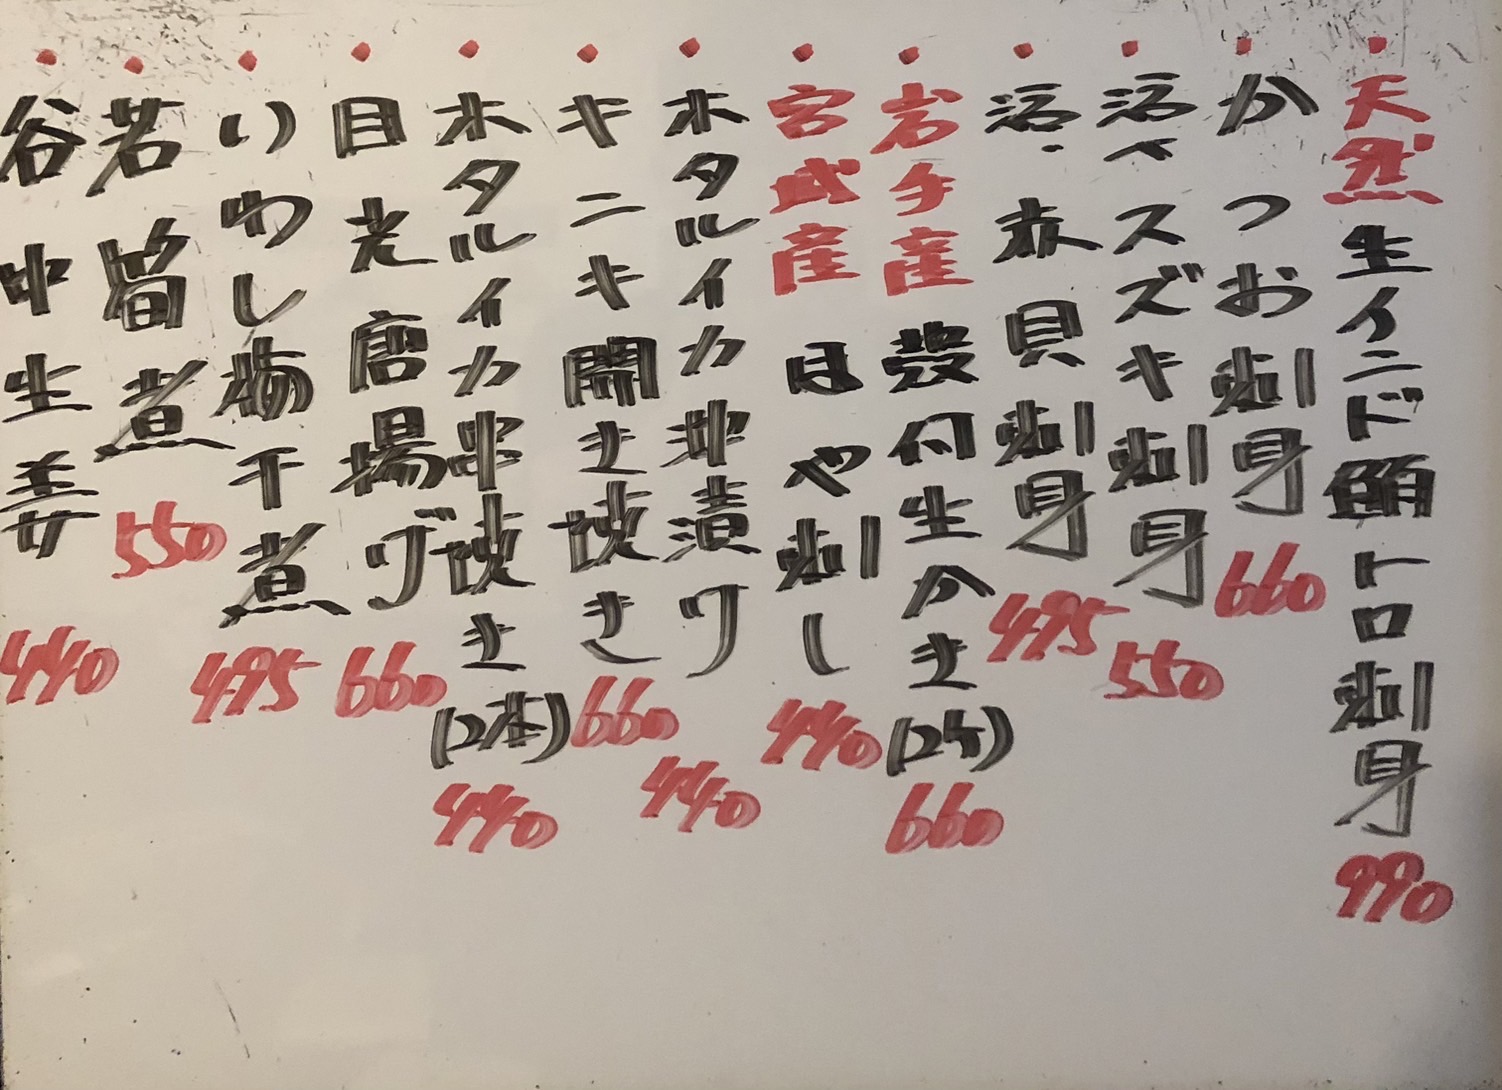 天然生インド鮪トロ刺身 990
かつお刺身 660
活〆スズキ刺身 550
活・赤貝刺身 495
岩手産 殻付生かき(2ケ) 660
宮城産 ほや刺し 440
ホタルイカ沖漬け 440
キニキ開き焼き 660
ホタルイカ串焼き(2本) 440
目光唐揚げ 660
いわし梅干煮 495
若筍煮 550
谷中生姜 440